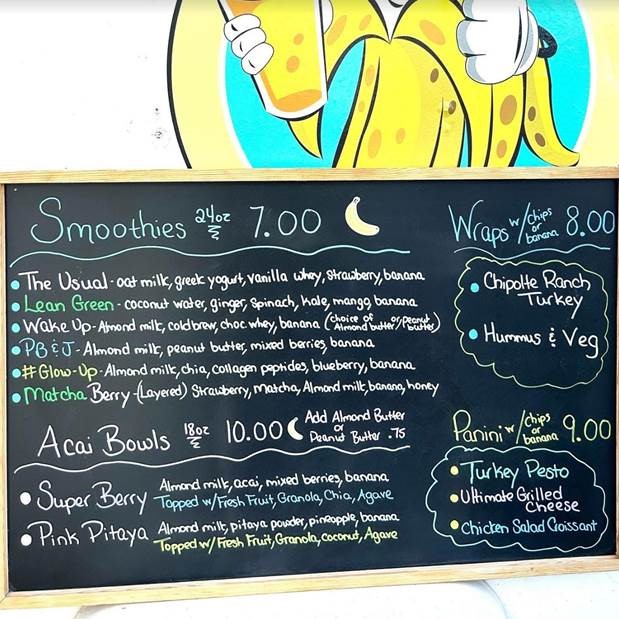 Smoothies 24oz 7.00
• The Usual - oat milk, greek yogurt, vanilla whey, strawberry, banana
• Lean Green - coconut water, ginger, spinach, kale, mango, banana
• Wake Up - Almond milk, cold brew, choc whey, banana (choice of Almond butter/peanut butter)
• PB & J - Almond milk, peanut butter, mixed berries, banana
• #Glow-Up - Almond milk, chia, collagen peptides, blueberry, banana
• Matcha Berry - (Layered) Strawberry, Matcha, Almond milk, banana, honey
Acai Bowls 18oz 10.00
Add Almond Butter
or
Peanut Butter .75
• Super Berry Almond milk, acai, mixed berries, banana
Topped w/ Fresh Fruit, Granola, Chia, Agave
• Pink Pitaya Almond milk, pitaya powder, pineapple, banana
Topped w/ Fresh Fruit, Granola, coconut, Agave
Wraps w/ chips or banana 8.00
• Chipotle Ranch
Turkey
• Hummus & Veg
Panini w/ chips or banana 9.00
• Turkey Pesto
• Ultimate Grilled
Cheese
• Chicken Salad Croissant